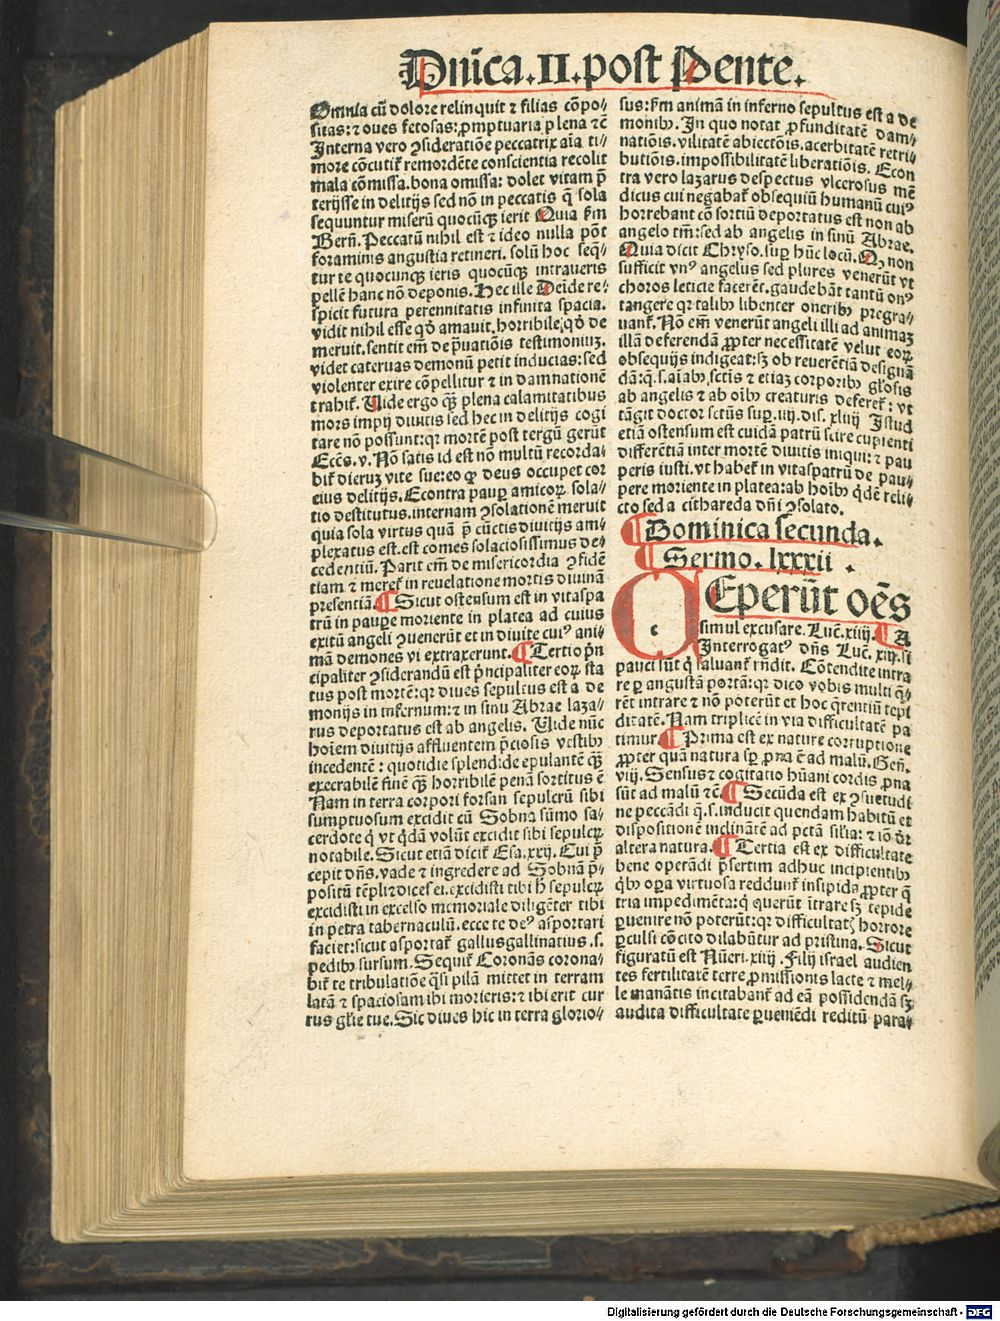 Dnĩca.II.post Pente.
Omnia cũ dolore relinquit ⁊ filias cõpo⸗
sitas:⁊ oues fetosas:ꝓmptuaria plena ⁊cẽ
Interna vero ꝯsideratiõe peccatrix aĩa ti⸗
more cõcutit᷑ remordẽte conscientia recolit
mala cõmissa.bona omissa: dolet vitam p̃
terijsse in delitijs sed nõ in peccatis q̃ sola
sequuntur miserũ quocũqꝫ ierit Quia ẜm
Bern̄. Peccatũ nihil est ⁊ ideo nulla põt
foraminis angustia retineri. solũ hoc seq̃⸗
tur te quocunqꝫ ieris quocũqꝫ intraueris
pellẽ hanc nõ deponis. Hec ille Deĩde re⸗
spicit futura perennitatis infinita spacia.
vidit nihil esse qđ amauit.horribile:qđ de
meruit.sentit em̃ de p̃uatiõis testimoniuꝫ.
videt cateruas demonũ petit inducias:sed
violenter exire cõpellitur ⁊ in damnationẽ
trahit᷑. Uide ergo qꝫ̃ plena calamitatibus
mors impij diuitis sed hec in delitijs cogi
tare nõ possunt:qꝛ mortẽ post tergũ gerũt
Eccẽs.v. Nõ satis id est nõ multũ recorda⸗
bit᷑ dieruꝫ vite sue:eo ꝙ deus occupet cor
eius delitijs. Econtra paup̱ amicoꝝ sola⸗
tio destitutus.internam ꝯsolationẽ meruit
quia sola virtus quã p̃ cũctis diuitijs am⸗
plexatus est.est comes solaciosissimus de⸗
cedentiũ. Parit em̃ de misericordia ꝯfidẽ
tiam ⁊ meret᷑ in reuelatione mortis diuinã
presentiã. ¶ Sicut ostensum est in vitaspa
trũ in paupe moriente in platea ad cuius
exitũ angeli ꝯuenerũt et in diuite cuiꝰ ani⸗
mã demones vi extraxerunt. ¶ Tertio p̃n
cipaliter ꝯsiderandũ est p̃ncipaliter eoꝝ sta
tus post mortẽ:qꝛ diues sepultus est a de
monijs in infernum:⁊ in sinũ Abrae laza⸗
rus deportatus est ab angelis. Uide nũc
hoĩem diuitijs affluentem p̃ciosis vestibꝫ
incedentẽ : quotidie splendide epulantẽ qꝫ̃
execrabilẽ finẽ qꝫ̃ horribilẽ penã sortitus ẽ
Nam in terra corpori forsan sepulcrũ sibi
sumptuosum excidit cũ Sobna sũmo sa⸗
cerdote q̇ vt q̇dã volũt excidit sibi sepulcꝝ
notabile. Sicut etiã dicit᷑ Esa.xxij. Cui p̃
cepit dñs.vade ⁊ ingredere ad Sobnã p̃⸗
positũ tẽpli:⁊ dices ei.excidisti tibi h̃ sepulcꝝ
excidisti in excelso memoriale diligẽter tibi
in petra tabernaculũ.ecce te deꝰ asportari
faciet:sicut asportat᷑ gallusgallinatius.s.
pedibꝫ sursum. Sequit᷑ Coronãs corona⸗
bit᷑ te tribulatiõe q̃si pilã mittet in terram
latã ⁊ spaciosam ibi morieris:⁊ ibi erit cur
rus gl̃ie tue. Sic diues hic in terra glorio⸗
sus:ẜm animã in inferno sepultus est a de
monibꝫ. In quo notat ꝓfunditatẽ dam⸗
natiõis.vilitatẽ abiectõis.acerbitatẽ retri⸗
butiõis.impossibilitatẽ liberatiõis. Econ
tra vero lazarus despectus vlcerosus mẽ
dicus cui negabat᷑ obsequiũ humanũ cuiꝰ
horrebant cõsortiũ deportatus est non ab
angelo tm̃:sed ab angelis in sinũ Abrae.
Quia dicit Chryso.sup̱ hũc locũ. Qꝫ non
sufficit vnꝰ angelus sed plures venerũt vt
choros leticie facerẽt.gaudebãt tantũ onꝰ
tangere qꝛ talibꝫ libenter oneribꝫ pregra⸗
uant᷑. Nõ em̃ venerũt angeli illi ad animaꝫ
illã deferendã ꝓpter necessitatẽ velut eoꝝ
obsequijs indigeat:sꝫ ob reuerẽtiã designã
dã:q̇.s.aĩabꝫ sctĩs ⁊ etiaꝫ corporibꝫ gl̃osis
ab angelis ⁊ ab oĩbꝫ creaturis deferet᷑ : vt
tãgit doctor sctũs sup̱.iiij.dis.xliij Istud
etiã ostensum est cuidã patrũ scire cupienti
differẽtiã inter mortẽ diuitis iniqui:⁊ pau
peris iusti.vt habet᷑ in vitaspatrũ de pau⸗
pere moriente in platea:ab hoĩbꝫ q̇dẽ reli⸗
cto sed a citharedа dñi ꝯsolato.
¶ Dominica secunda.
¶ Sermo. lxxxii .
CEperũt oẽs
simul excusare. Luc̃.xiiij. ¶ A
Interrogatꝰ dñs Luc̃. xiij.si
pauci sũt q̇ saluant᷑ rñdit. Cõtendite intra
re p̱ angustã portã:qꝛ dico vobis multi q̃⸗
rẽt intrare ⁊ nõ poterũt et hoc q̃rentiũ tepi
ditatẽ. Nam triplicẽ in via difficultatẽ pa
timur. ¶ Prima est ex nature corruptione
ꝓpter quã natura sp̱ ꝓna ẽ ad malũ. Geñ.
viij. Sensus ⁊ cogitatio hũani cordis ꝓna
sũt ad malũ ⁊cẽ. ¶ Secũda est ex ꝯsuetudi
ne peccãdi q̃.s.inducit quendam habitũ et
dispositionẽ inclinãtẽ ad pctã sil̃ia:⁊ iõ dr̃
altera natura. ¶ Tertia est ex difficultate
bene operãdi p̃sertim adhuc incipientibꝫ
q̇bꝫ oꝑa virtuosa reddunt᷑ insipida ꝓpter q̃
tria impedimẽta:q̇ querũt ĩtrare sꝫ tepide
ꝑuenire nõ poterũt:qꝛ difficultatꝭ horrore
ꝑculsi cõcito dilabũtur ad pristina. Sicut
figuratũ est Nũeri.xiiij. Filij israel audien
tes fertilitatẽ terre ꝓmissionis lacte ⁊ mel⸗
le manãtis incitabant᷑ ad eã possidendã sꝫ
audita difficultate ꝑueniẽdi reditũ para⸗
Digitalisierung gefördert durch die Deutsche Forschungsgemeinschaft - DFG